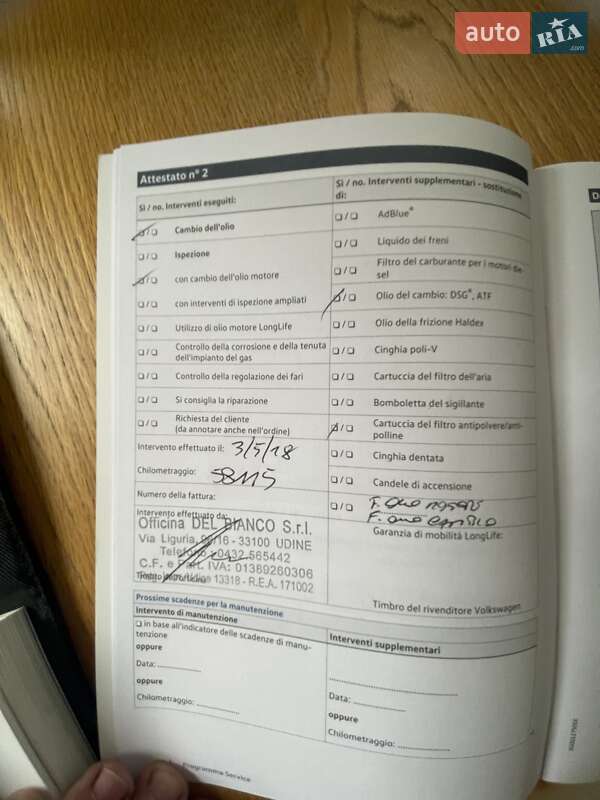 auto RIA .com
Attestato n° 2
Sì / no. Interventi eseguiti:
Cambio dell'olio
Ispezione
con cambio dell'olio motore
con interventi di ispezione ampliati
Utilizzo di olio motore LongLife
Controllo della corrosione e della tenuta
dell'impianto del gas
Controllo della regolazione dei fari
Si consiglia la riparazione
Richiesta del cliente
(da annotare anche nell'ordine)
Intervento effettuato il: 3/5/18
Chilometraggio: 58115
Numero della fattura:
Intervento effettuato da:
Officina DEL BIANCO S.r.l.
Via Liguria, 96/16 - 33100 UDINE
Telefono 0432 565442
C.F. e Part. IVA: 01389260306
13318 - R.E.A. 171002
Sì / no. Interventi supplementari - sostituzione
di:
AdBlue®
Liquido dei freni
Filtro del carburante per i motori die-
sel
Olio del cambio: DSG®, ATF
Olio della frizione Haldex
Cinghia poli-V
Cartuccia del filtro dell'aria
Bomboletta del sigillante
Cartuccia del filtro antipolvere/anti-
polline
Cinghia dentata
Candele di accensione
Garanzia di mobilità LongLife:
Timbro del rivenditore Volkswagen
Prossime scadenze per la manutenzione
Intervento di manutenzione
in base all'indicatore delle scadenze di manu-
tenzione
oppure
Data:
oppure
Chilometraggio:
Interventi supplementari
Data:
oppure
Chilometraggio:
Programma Service